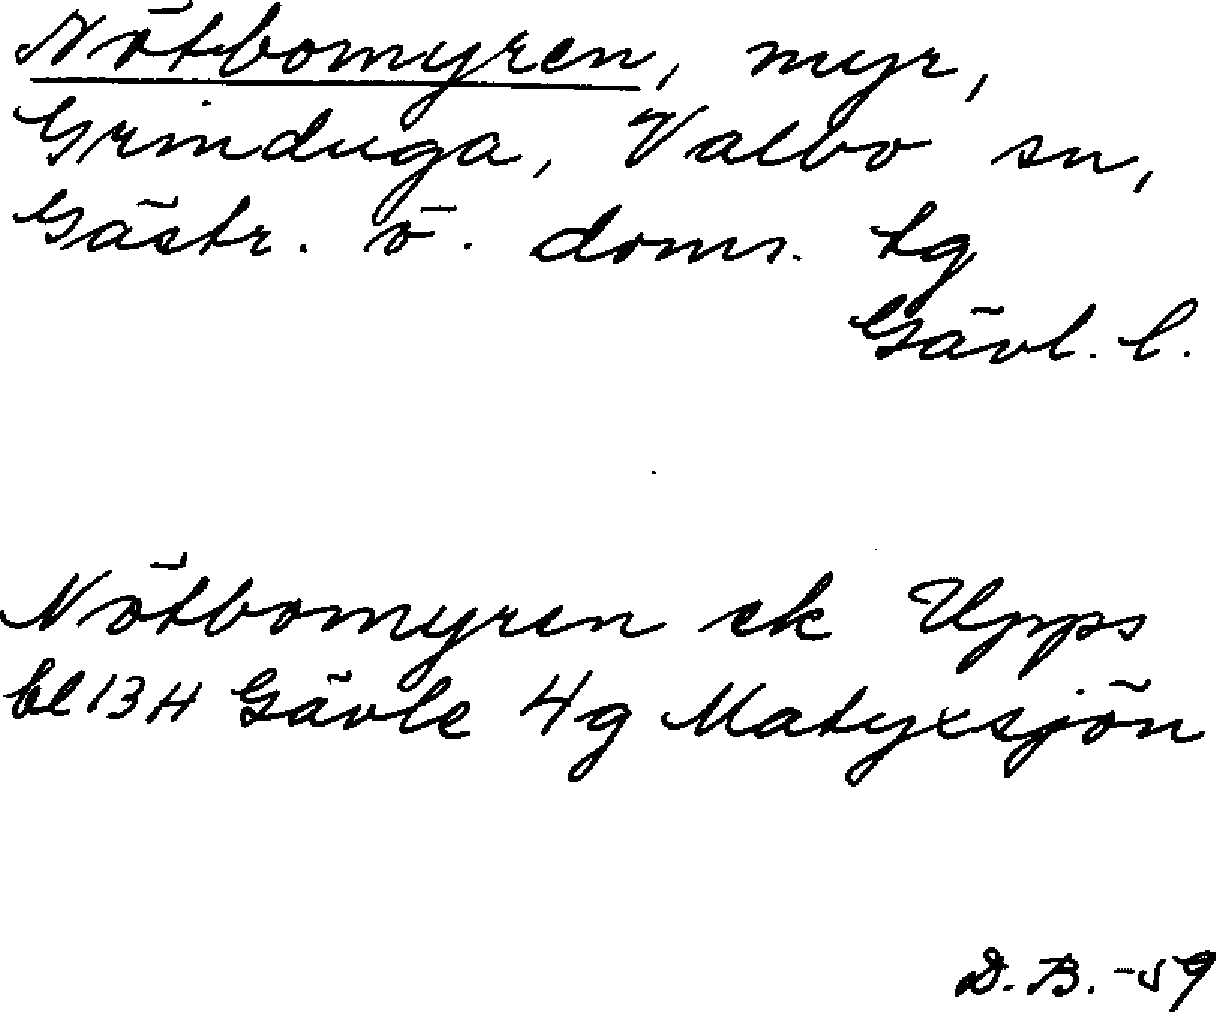 Nötbomyren, myr,
Grinduga, Valbo sn,
Gästr. ö. doms. tg
Gävl. l.
Nötbomyren ek Upps
bl 13H Gävle 4g Matyxsjön
D.B. -59